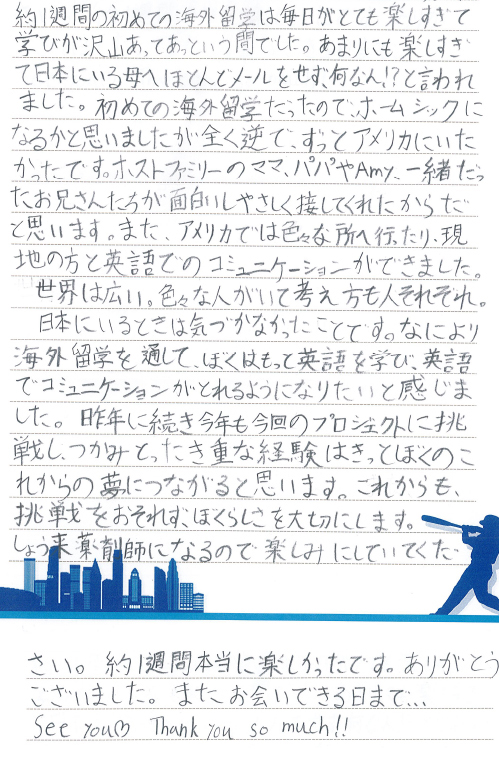 約1週間の初めての海外留学は毎日がとても楽しすぎて
学びが沢山あってあっという間でした。あまりにも楽しすぎ
て日本にいる母へほとんどメールをせず、何なん!?と言われ
ました。初めての海外留学だったので、ホームシックに
なるかと思いましたが全く逆で、ずっとアメリカにいた
かったです。ホストファミリーのママ、パパやAmy、一緒だっ
たお兄さんたちが面白いしやさしく接してくれたからだ
と思います。また、アメリカでは色々な所へ行たり、現
地の方と英語でのコミュニケーションができました。
世界は広い。色々な人がいて考え方も人それぞれ。
日本にいるときは気づかなかったことです。なにより
海外留学を通して、ぼくはもっと英語を学び、英語
でコミュニケーションがとれるようになりたいと感じま
した。昨年に続き今年も今回のプロジェクトに挑
戦し、つかみとったき重な経験はきっとぼくのこ
れからの夢につながると思います。これからも、
挑戦をおそれず、ぼくらしさを大切にします。
しょう来薬剤師になるので楽しみにしていてくだ
さい。約1週間本当に楽しかったです。ありがとう
ございました。またお会いできる日まで...
See you♡ Thank you so much!!